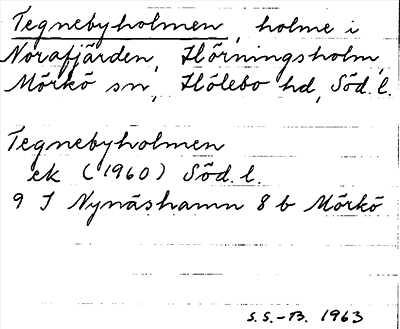 Tegnebyholmen, holme i
Norafjärden, Hörningsholm,
Mörkö sn, Hölebo hd, Söd. l.
Tegnebyholmen
ek (1960) Söd. l.
9 I Nynäshamn 8 b Mörkö
S.S.-B. 1963